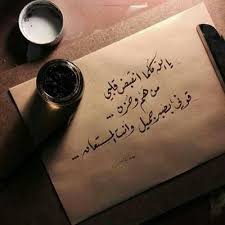 يا رب كلما انقبض قلبي
من هم وحزن ...
قوني بصبر جميل وانت المستعان ...